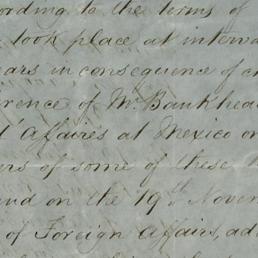 ording to the terms of
took place at interva
ears in consequence of c
erence of Mr. Bankhea
d'Affaires at Mexico on
ers of some of these
and on the 19th Novem
of Foreign Affairs, ad